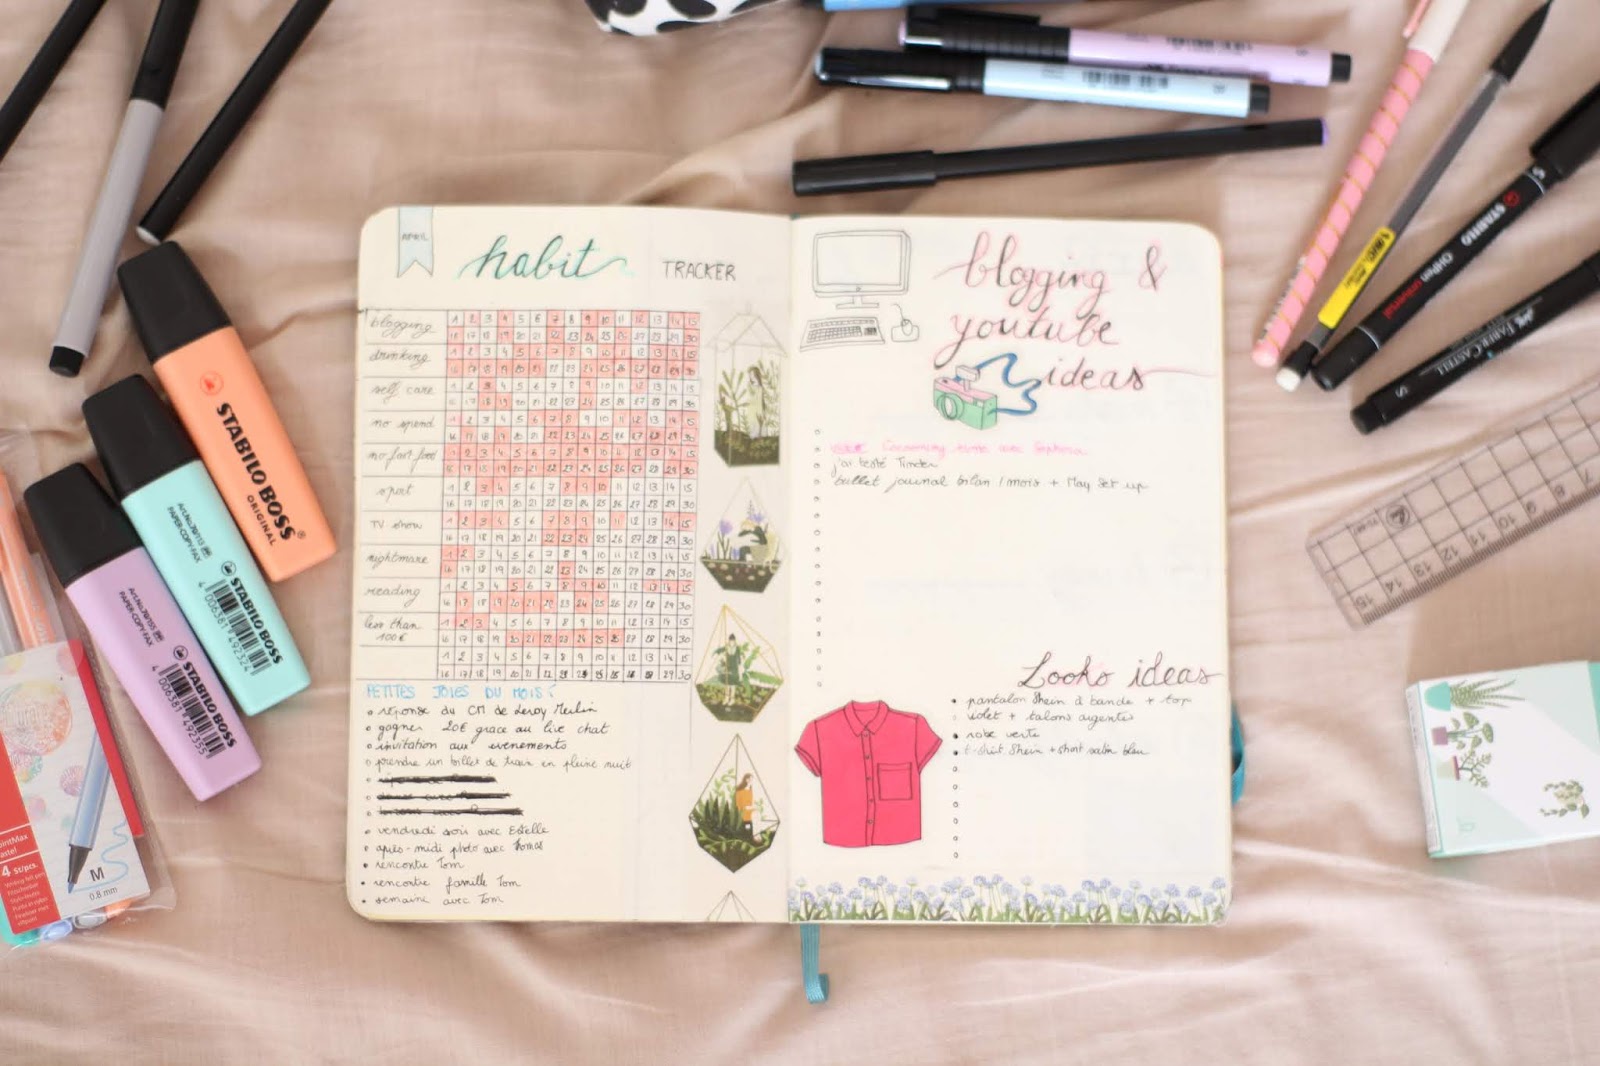 APRIL
habit TRACKER
blogging 1 2 3 4 5 6 7 8 9 10 11 12 13 14 15
16 17 18 19 20 21 22 23 24 25 26 27 28 29 30
drinking 1 2 3 4 5 6 7 8 9 10 11 12 13 14 15
16 17 18 19 20 21 22 23 24 25 26 27 28 29 30
self care 1 2 3 4 5 6 7 8 9 10 11 12 13 14 15
16 17 18 19 20 21 22 23 24 25 26 27 28 29 30
no spend 1 2 3 4 5 6 7 8 9 10 11 12 13 14 15
16 17 18 19 20 21 22 23 24 25 26 27 28 29 30
no fast food 1 2 3 4 5 6 7 8 9 10 11 12 13 14 15
16 17 18 19 20 21 22 23 24 25 26 27 28 29 30
sport 1 2 3 4 5 6 7 8 9 10 11 12 13 14 15
16 17 18 19 20 21 22 23 24 25 26 27 28 29 30
TV show 1 2 3 4 5 6 7 8 9 10 11 12 13 14 15
16 17 18 19 20 21 22 23 24 25 26 27 28 29 30
nightmare 1 2 3 4 5 6 7 8 9 10 11 12 13 14 15
16 17 18 19 20 21 22 23 24 25 26 27 28 29 30
reading 1 2 3 4 5 6 7 8 9 10 11 12 13 14 15
16 17 18 19 20 21 22 23 24 25 26 27 28 29 30
less than 1 2 3 4 5 6 7 8 9 10 11 12 13 14 15
100€ 16 17 18 19 20 21 22 23 24 25 26 27 28 29 30
1 2 3 4 5 6 7 8 9 10 11 12 13 14 15
16 17 18 19 20 21 22 23 24 25 26 27 28 29 30
PETITES JOIES DU MOIS :
réponse du CM de Leroy Merlin
gagner 20€ grace au live chat
invitation aux evenements
prendre un billet de train en pleine nuit
vendredi soir avec Estelle
après-midi photo avec Thomas
rencontre Tom
rencontre famille Tom
semaine avec Tom
blogging &
youtube
ideas
avec Sephora
j'ai testé Tinder
bullet journal bilan 1 mois + May set up
Looks ideas
pantalon Shein à bande + top
violet + talons argentés
robe verte
t-shirt Shein + short satin bleu
STABILO BOSS
ORIGINAL
STABILO BOSS
Art.No.70/113
PAPER-COPY-FAX
4 006381 492324
STABILO BOSS
Art.No.70/155
PAPER-COPY-FAX
4 006381 492355
M
0.8 mm
STABILO OHPen universal S
FABER-CASTELL S
7 8 9 10 11 12 13 14 15